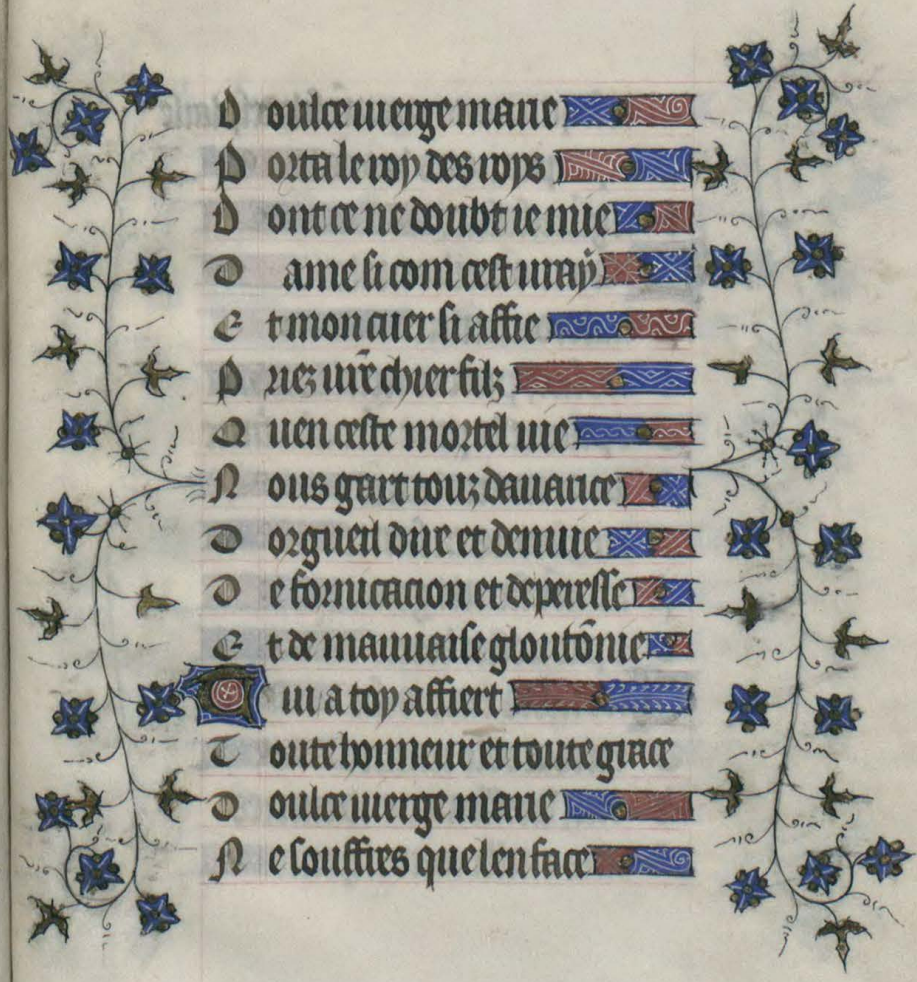 Doulce uierge marie
Porta le roy des roys
Dont ce ne doubt ie mie
Dame si com cest uray
Et mon cuer si affie
Priez ur̃e chier filz
Quen ceste mortel uie
Nous gart touz dauarice
Dorgueil dire et denuie
De fornicacion et de peresse
Et de mauuaise gloutõnie
Qui a toy affiert
Toute honneur et toute grace
Doulce uierge marie
Ne souffres que len face